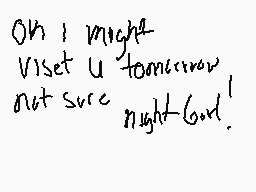 Oh i might
viset u tomorrow
not sure
night Gurl!